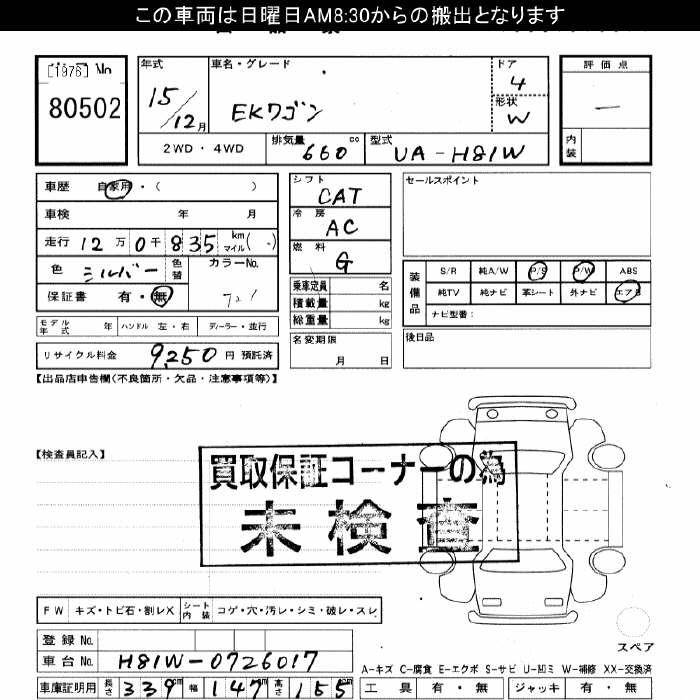 この車両は日曜日AM8:30からの搬出となります
[1976] No
80502
年式 車名・グレード ドア 評価点
15/12月 EKワゴン 4
形状 W
2WD・4WD 排気量 660 cc 型式 UA-H81W
内装
車歴 自家用・( )
車検 年 月
走行 12万0千835 km マイル( )
色 シルバー 色替 カラーNo.
保証書 有・無
シフト CAT
冷房 AC
燃料 G
乗車定員 名
積載量 kg
総重量 kg
セールスポイント
装備品 S/R 純A/W P/S P/W ABS
純TV 純ナビ 革シート 外ナビ エアB
ナビ型番:
モデル年式 年 ハンドル 左・右 ディーラー・並行
名変期限 月 日
後日品
リサイクル料金 9,250 円 預託済
【出品店申告欄(不良箇所・欠品・注意事項等)】
【検査員記入】
買取保証コーナーの為
未検査
FW キズ・トビ石・割レX シート内装 コゲ・穴・汚レ・シミ・破レ・スレ
スペア
登録No.
車台No. H81W-0726017
A-キズ C-腐食 E-エクボ S-サビ U-凹ミ W-補修 XX-交換済
車庫証明用 長さ 339cm 幅 147cm 高さ 155cm
工具 有・無 ジャッキ 有・無